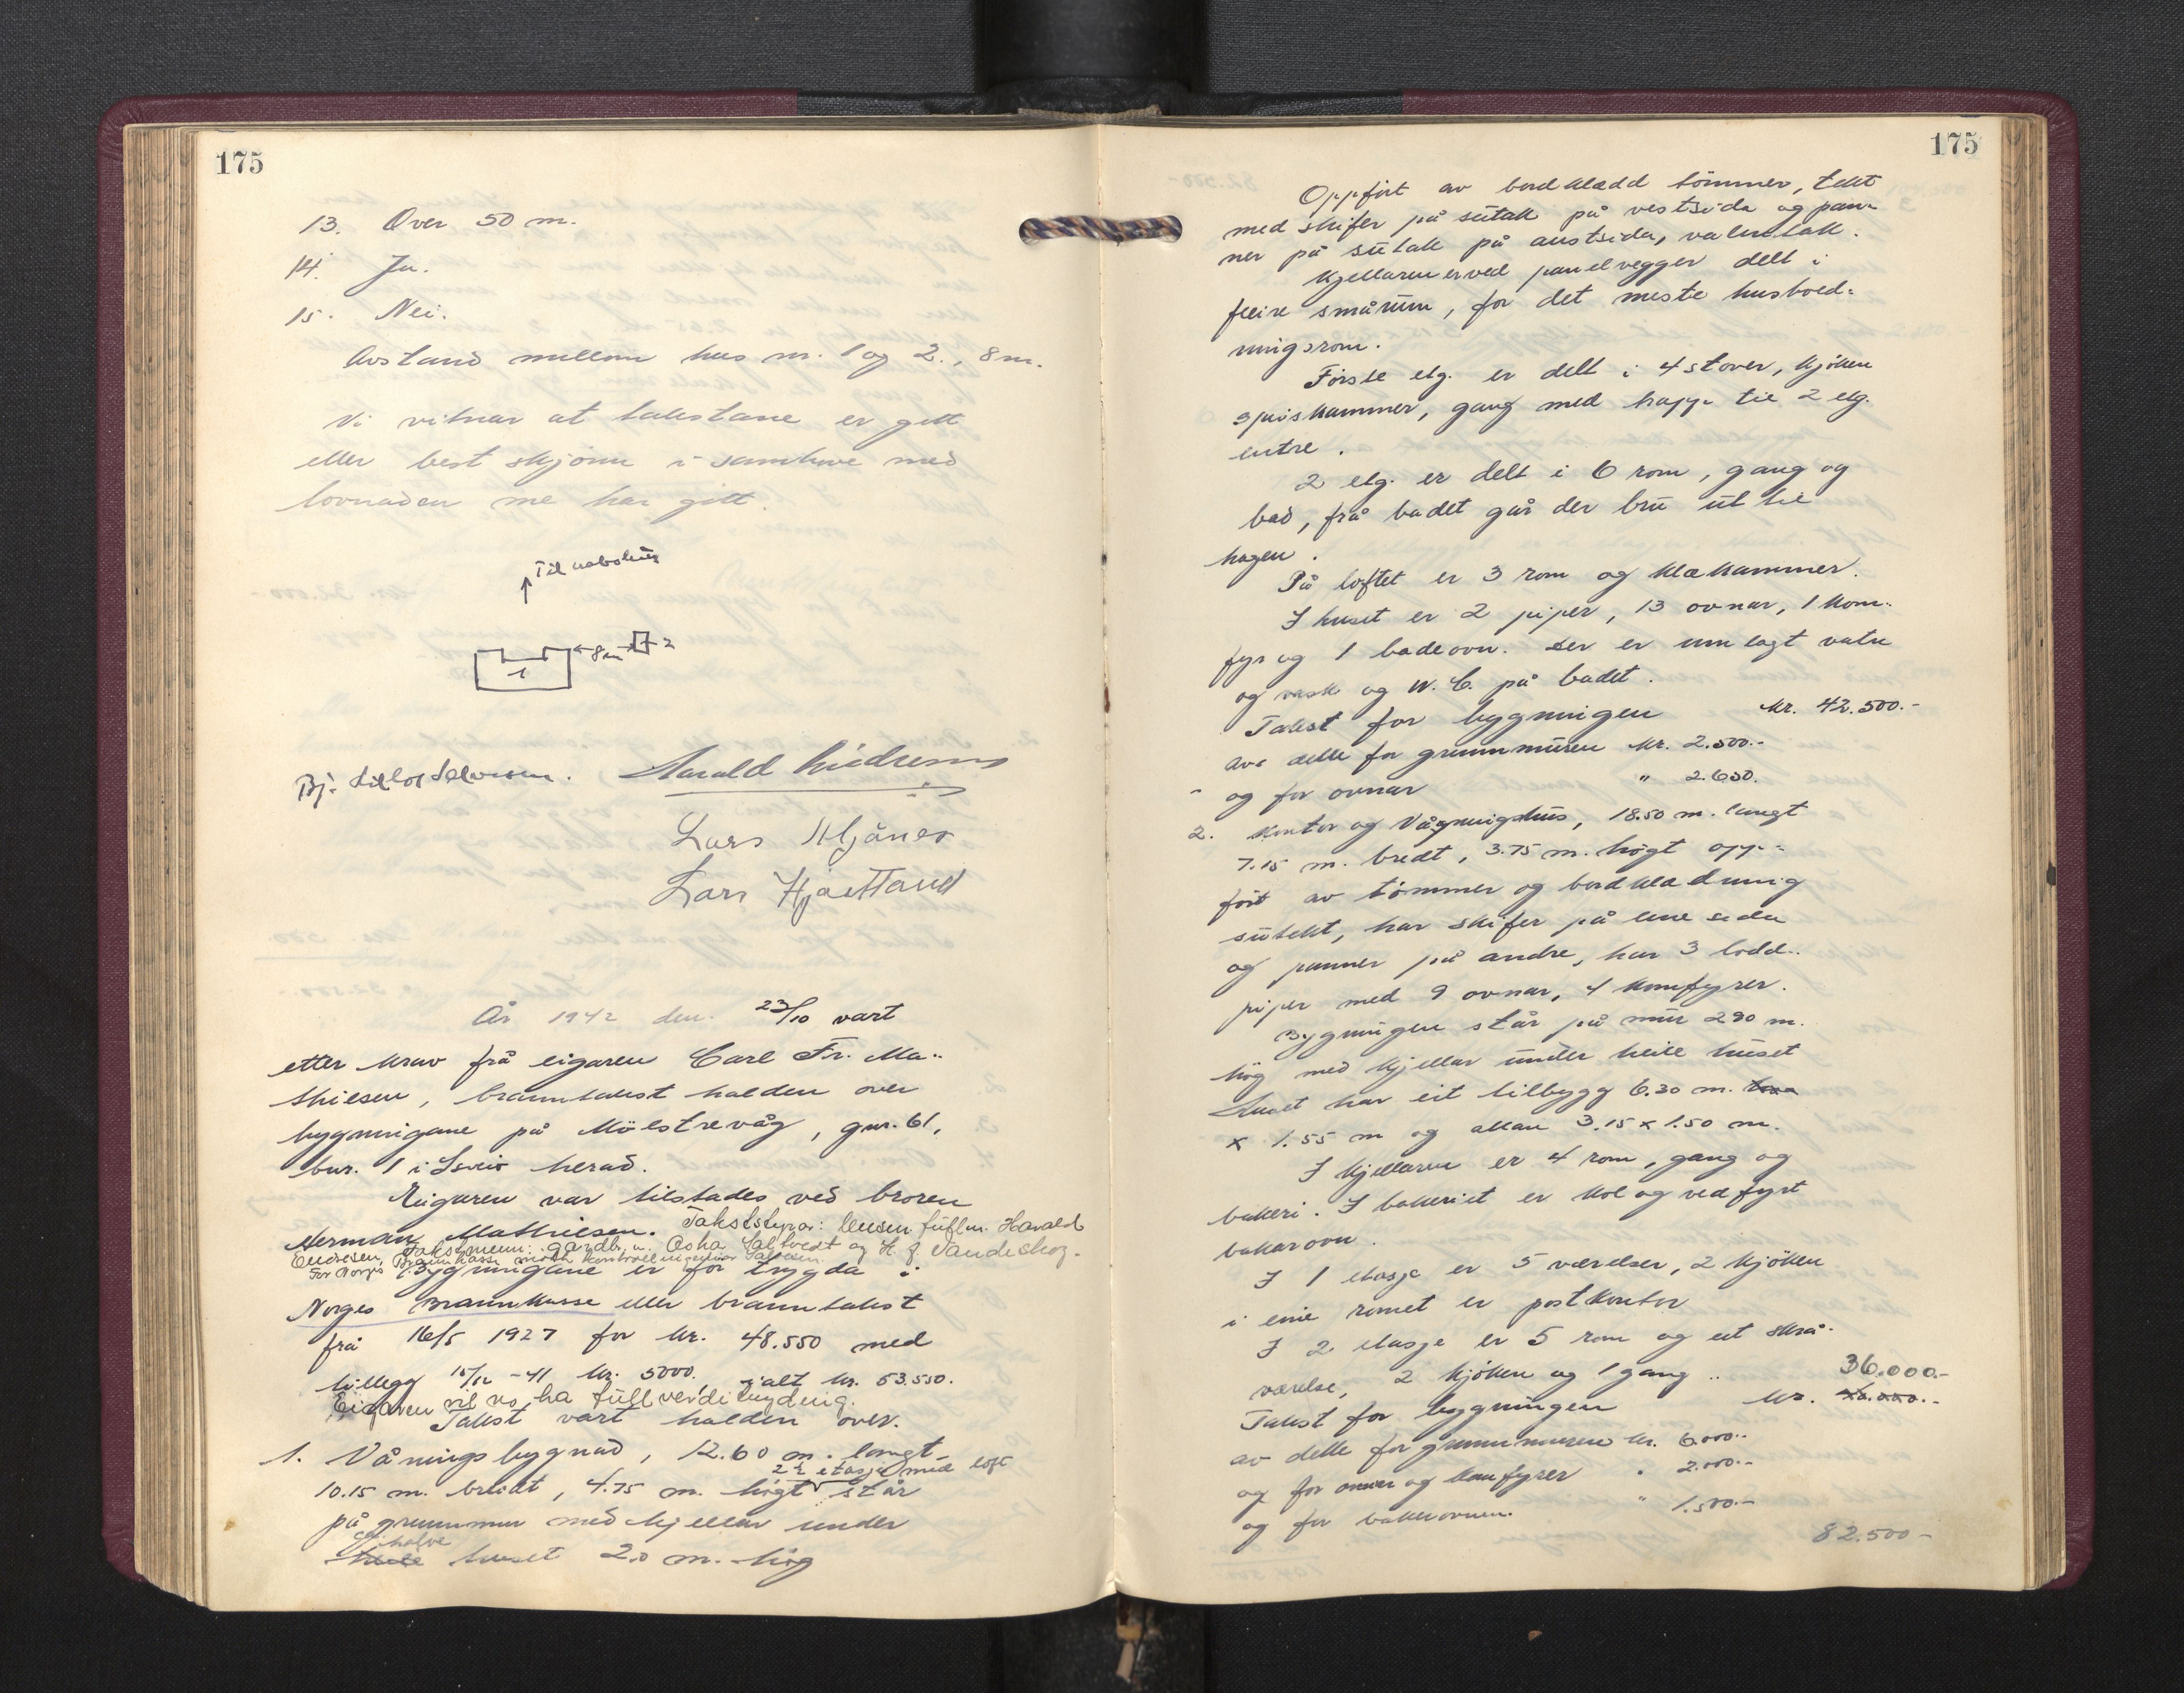 175
13. Over 50 m.
14. Ja.
15. Nei.
Avstand millom hus nr. 1 og 2., 8 m.
Vi vitnar at takstane er gett
eller best skjönn i samhøve med
lovnaden me har gitt.
Til nabohus
8 m
2
1
Bj. Harald Endresen
Lars Hjånes
Lars Hjartland
År 1942 den. 23/10 vart
etter krav frå eigaren Carl Fr. Ma-
thiesen, branntakst halden over
bygningane på Mölstrevåg, gnr. 61,
bnr. 1 i Sveio herad.
Eigaren var tilstades ved broren
Herman Mathiesen. Takststyrar: lensm. fullm. Harald
Endresen, Takstmenn: gardbr. Saltvedt og
For Norges Brannkasse møtte kontrollingeniør
Bygningane er for trygda i
Norges Brannkasse eller branntakst
frå 16/5 1927 for kr. 48.550 med
tillegg 15/12 -41 kr. 5000, ialt kr. 53.550.
Eigaren vil no ha fullverditrygding.
Takst vart halden over.
1. Våningsbygnad, 12.60 m. langt
2 ½ etasje med loft
10.15 m. breidt, 4.75 m. högt står
på grunnmur med kjellar under
halve
heile huset 2,0 m. hög
175
Oppfört av bordklædd tömmer, tekt
med skifer på sutak på vestsida og pan-
ner på sutak på austsida, valmtak.
Kjellaren er ved panelvegger delt i
fleire smårum, for det meste hushold-
ningsrom.
Förste etg. er delt i 4 stover, kjöken
spiskammer, gang med trapp til 2 etg.
entre.
2 etg. er delt i 6 rom, gang og
bad, frå badet går der bru ut til
hagen.
På loftet er 3 rom og klækammer.
I huset er 2 piper, 13 ovnar, 1 kom-
fyr og 1 badeovn. Der er innlagt vatn
og vask og W.C. på badet.
Takst for bygningen kr. 42.500.-
av dette for grunnmuren kr. 2.500.-
og for ovnar " 2.650.
2. Kontor og Våningshus, 18.50 m. langt
7.15 m. bredt, 3.75 m. högt opp-
fört av tömmer og bordklædning
sutekt, har skifer på eine sida
og panner på andre, har 3 lodd-
piper med 9 ovnar, 4 komfyrer.
Bygningen står på mur 290 m.
hög med kjellar under heile huset
Huset har eit tilbygg 6.30 m.
x 1.55 m og altan 3.15 x 1.50 m.
I kjellaren er 4 rom, gang og
bakeri. I bakeriet er kol og vedfyrt
bakarovn.
I 1 etasje er 5 værelser, 2 kjöken
i eine romet er postkontor
I 2 etasje er 5 rom og eit skrå-
værelse, 2 kjöken og 1 gang..
36.000.-
Takst for bygningen kr. 40.000.-
av dette for grunnmuren kr. 6.000.-
og for ovner og komfyrer " 2.000.-
og for bakerovnen. " 1.500.-
82.500-